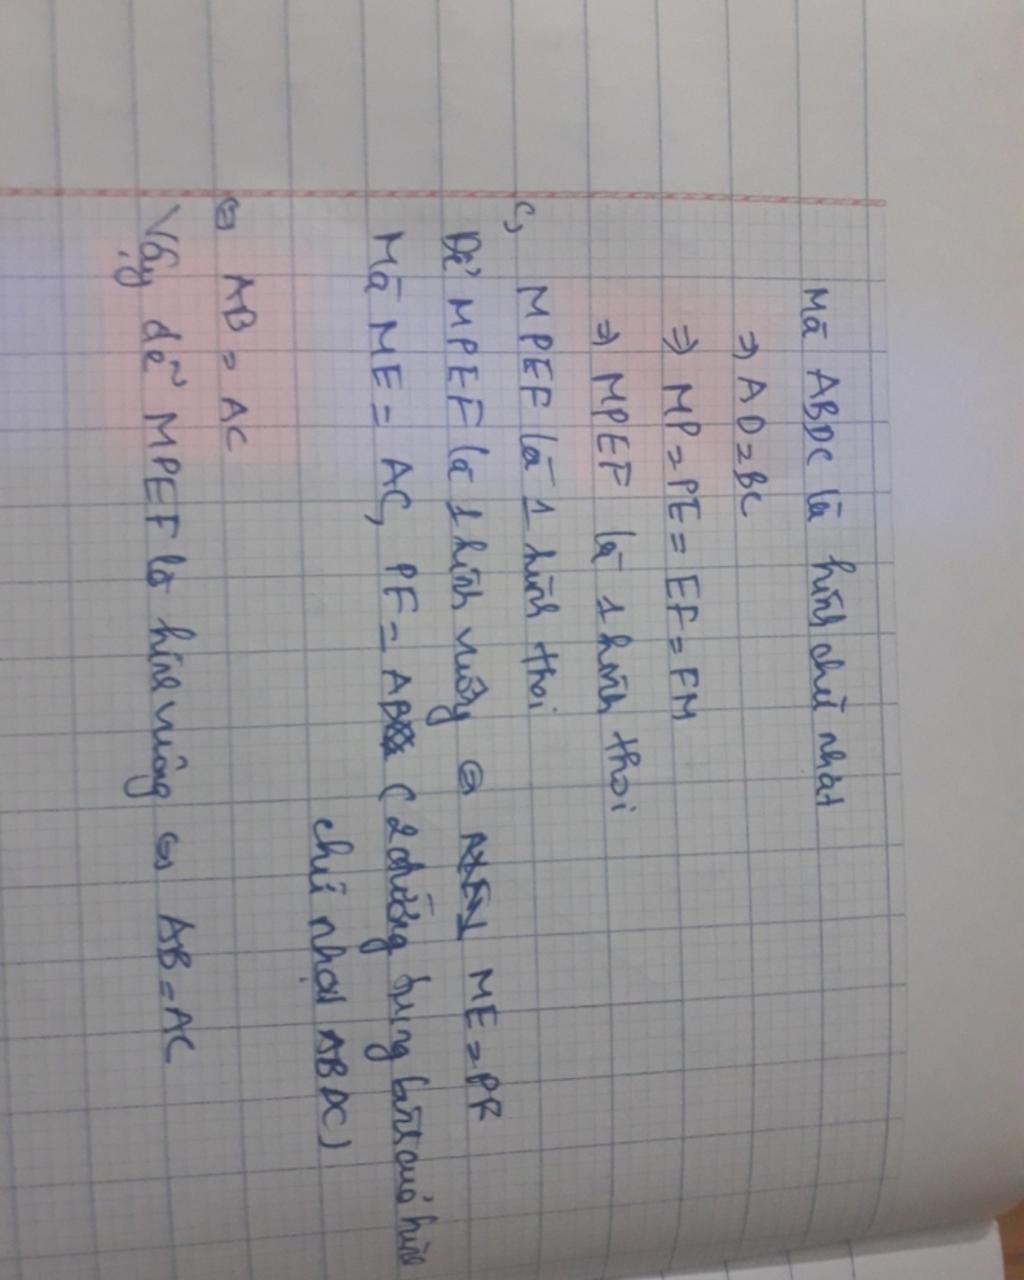 Mà ABDC là hình chữ nhật
=> AD = BC
=> MP = PE = EF = FM
=> MPEF là 1 hình thoi
c, MPEF là 1 hình thoi
Để MPEF là 1 hình vuông <=> ME = PF
Mà ME = AC, PF = AB (2 đường trung bình của hình
chữ nhật ABDC)
<=> AB = AC
Vậy để MPEF là hình vuông <=> AB = AC